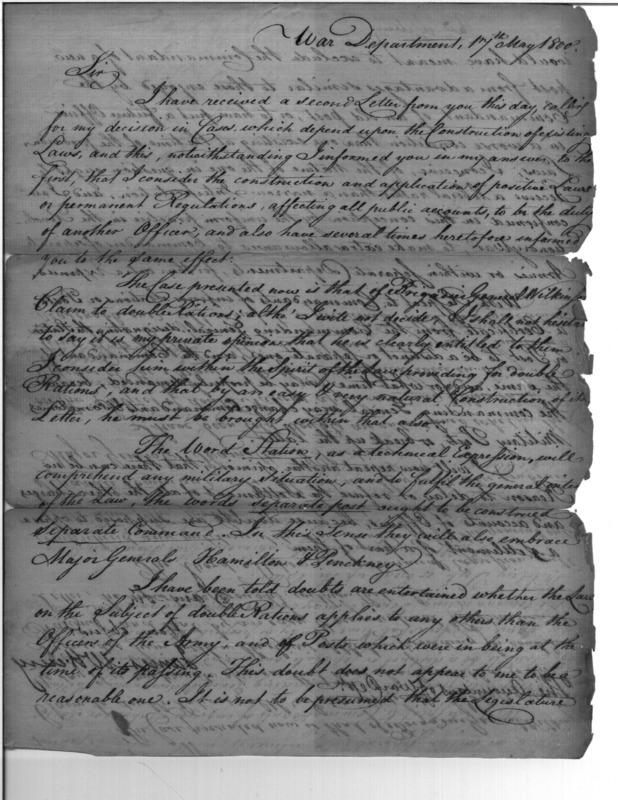 War Department, 17th May 1800.
Sir
I have received a second Letter from you this day, calling
for my decision in Cases, which depend upon the Construction of existing
Laws, and this, notwithstanding I informed you in my answer, to the
first, that I consider the construction and application of positive Laws
or permanent Regulations, affecting all public accounts, to be the duty
of another Officer, and also have several times heretofore informed
you to the same effect.
The Case presented now is that of Brigadier General Wilkins
Claim to double Rations; altho' I will not decide, I shall not hesitate
to say it is my private opinion that he is clearly entitled to them
I consider him within the Spirit of the Law providing for double
Rations, and that by an easy & very natural Construction of its
Letter, he must be brought within that also.
The Word Station, as a technical Expression, will
comprehend any military Situation, and to fulfil the general intent
of the Law, the words separate post ought to be construed
separate Command. In this sense they will also embrace
Major Generals Hamilton & Pinckney
I have been told doubts are entertained whether the Law
on the Subject of double Rations applies to any others than the
Officers of the Army, and of Posts which were in being at the
time of its passing. This doubt does not appear to me to be a
reasonable one. It is not to be presumed that the Legislature